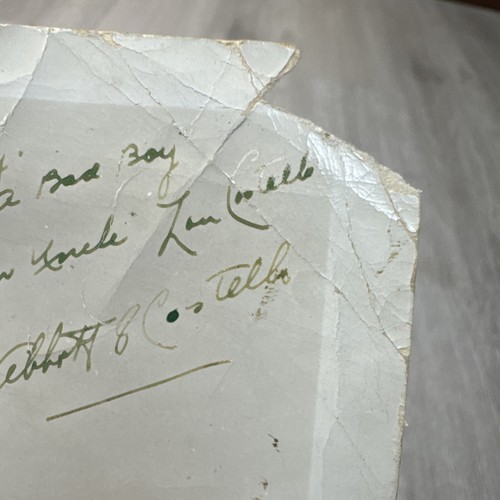 a Bad Boy
Uncle Lou Costello
Abbott & Costello